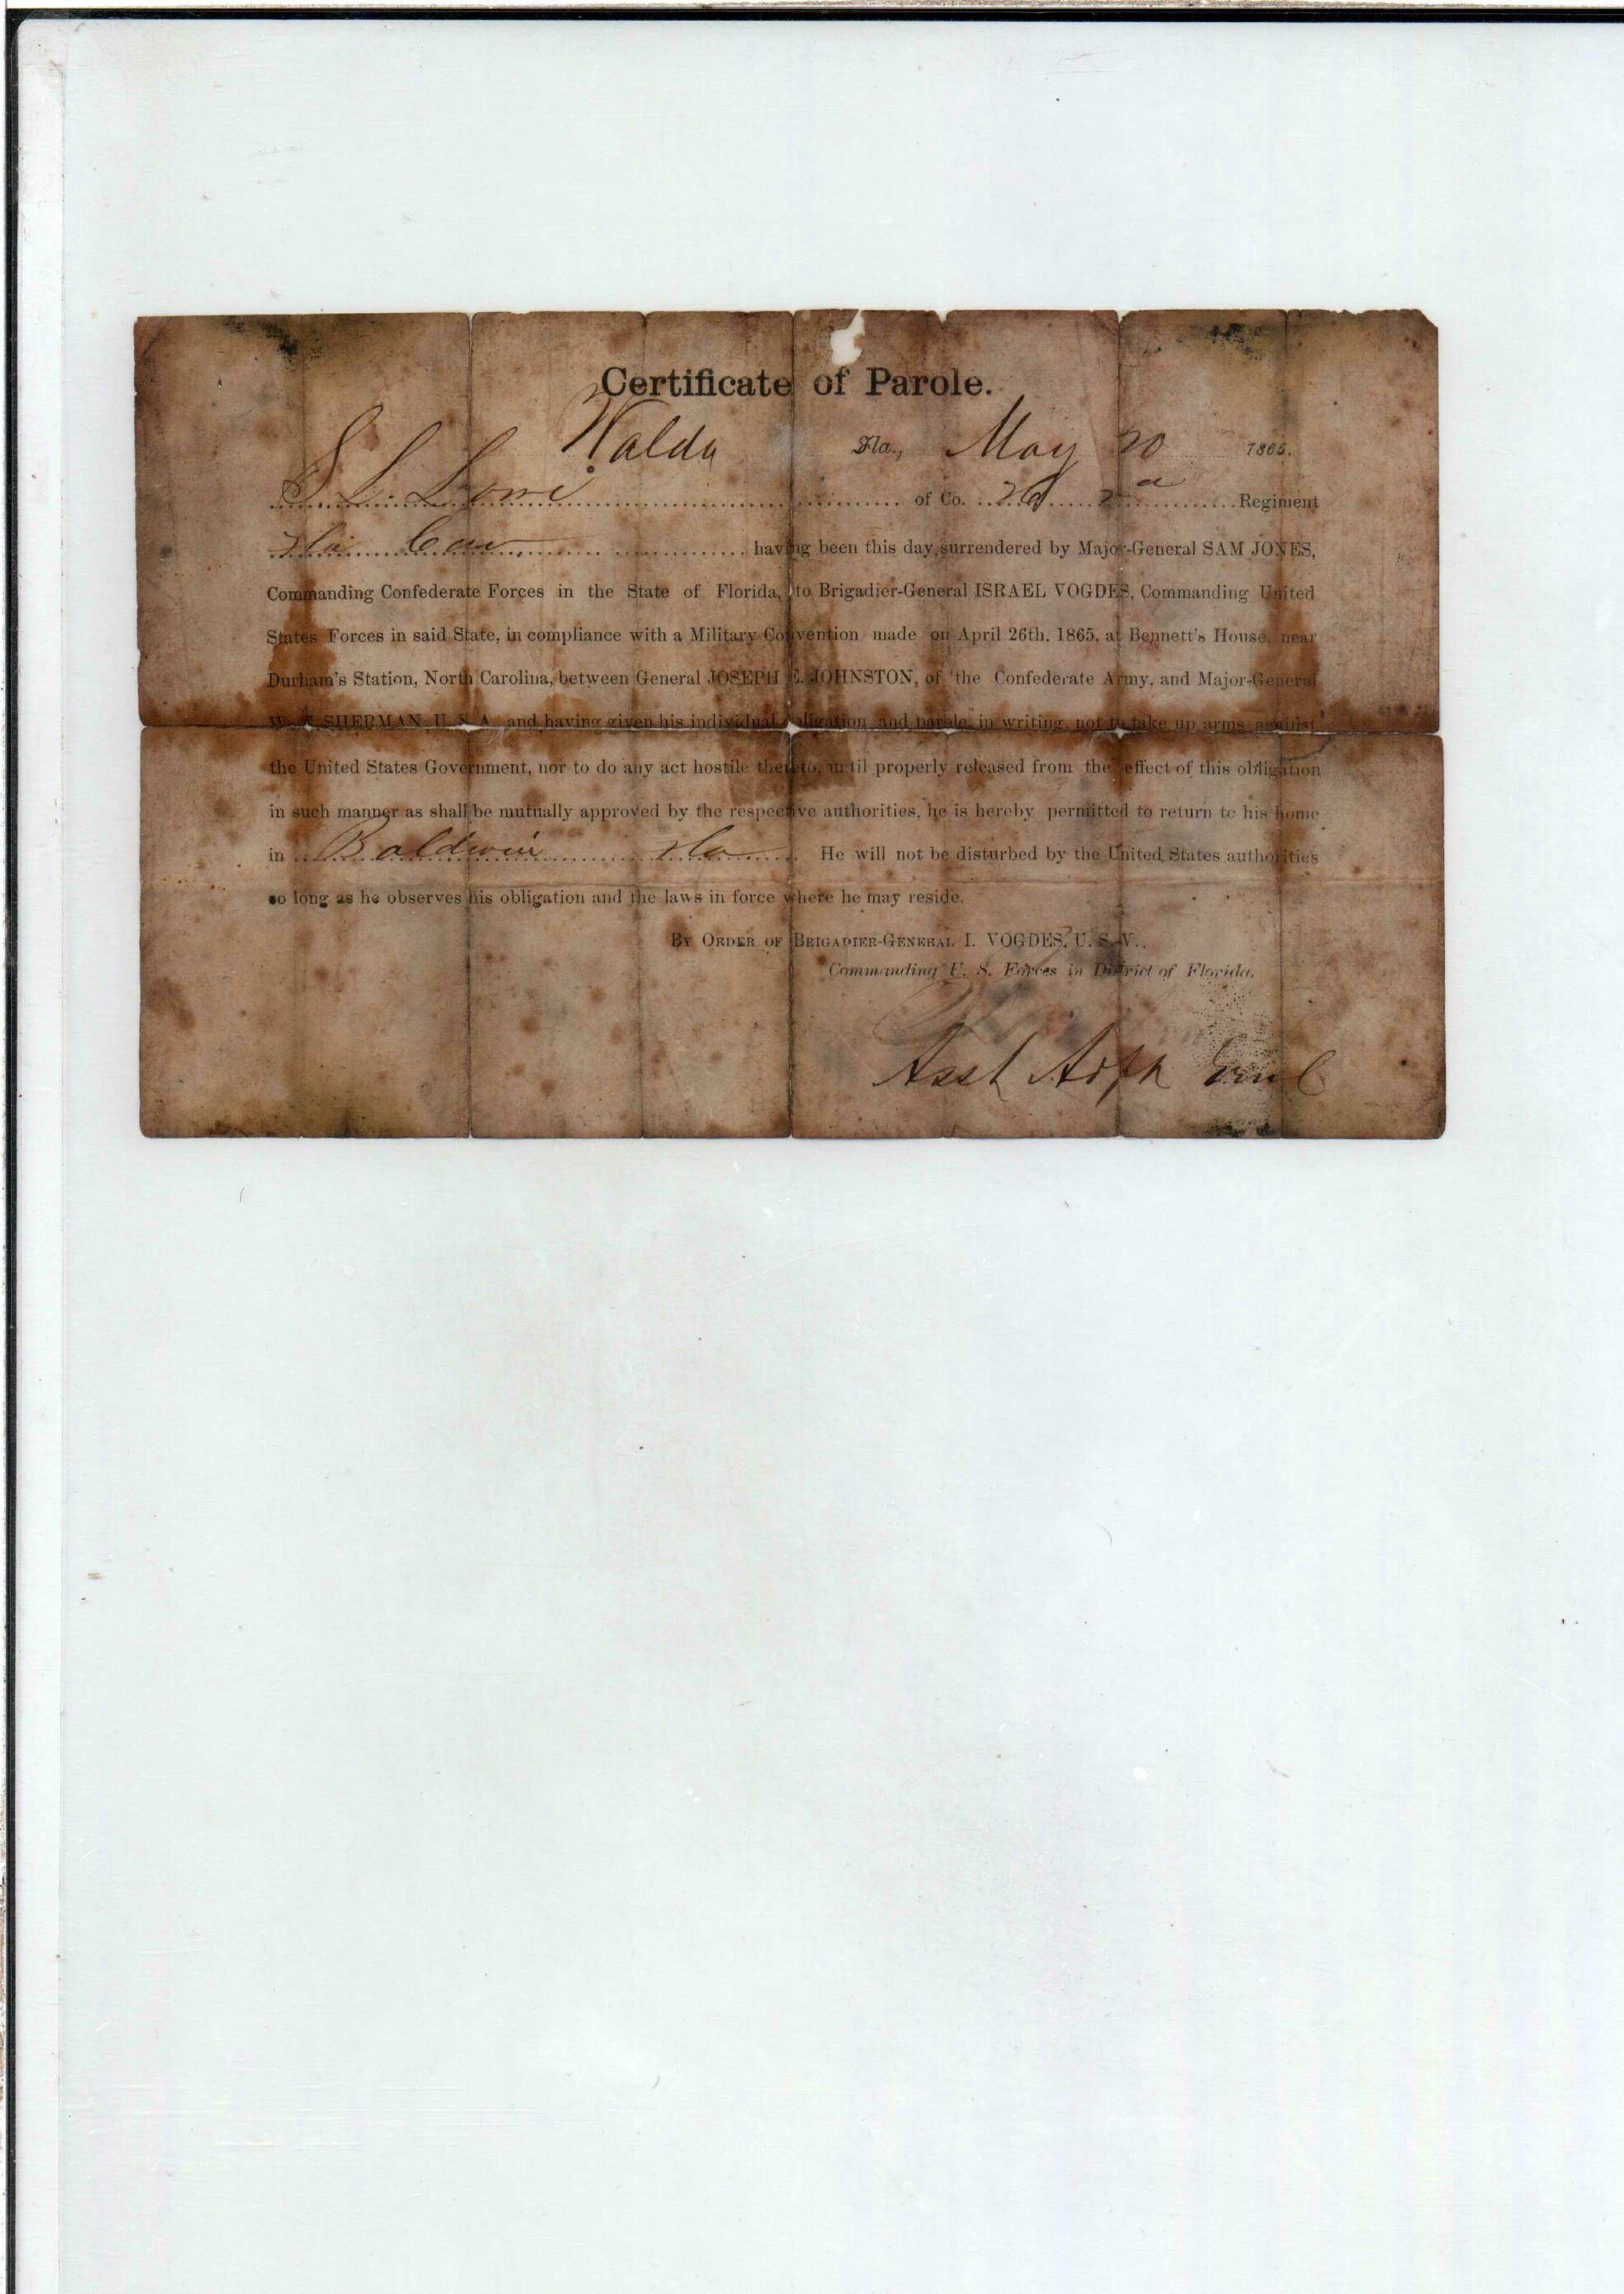 Certificate of Parole.
Waldo Fla., May 20 1865.
S. L. of Co. Regiment
Fla Cav having been this day surrendered by Major-General SAM JONES,
Commanding Confederate Forces in the State of Florida, to Brigadier-General ISRAEL VOGDES, Commanding United
States Forces in said State, in compliance with a Military Convention made on April 26th, 1865, at Bennett's House, near
Durham's Station, North Carolina, between General JOSEPH E. JOHNSTON, of the Confederate Army, and Major-General
W. T. SHERMAN, U. S. A., and having given his individual obligation and parole, in writing, not to take up arms against
the United States Government, nor to do any act hostile thereto, until properly released from the effect of this obligation
in such manner as shall be mutually approved by the respective authorities, he is hereby permitted to return to his home
in Baldwin Fla. He will not be disturbed by the United States authorities
so long as he observes his obligation and the laws in force where he may reside.
BY ORDER OF BRIGADIER-GENERAL I. VOGDES, U. S. V.,
Commanding U. S. Forces in District of Florida.
Asst Adjt Genl